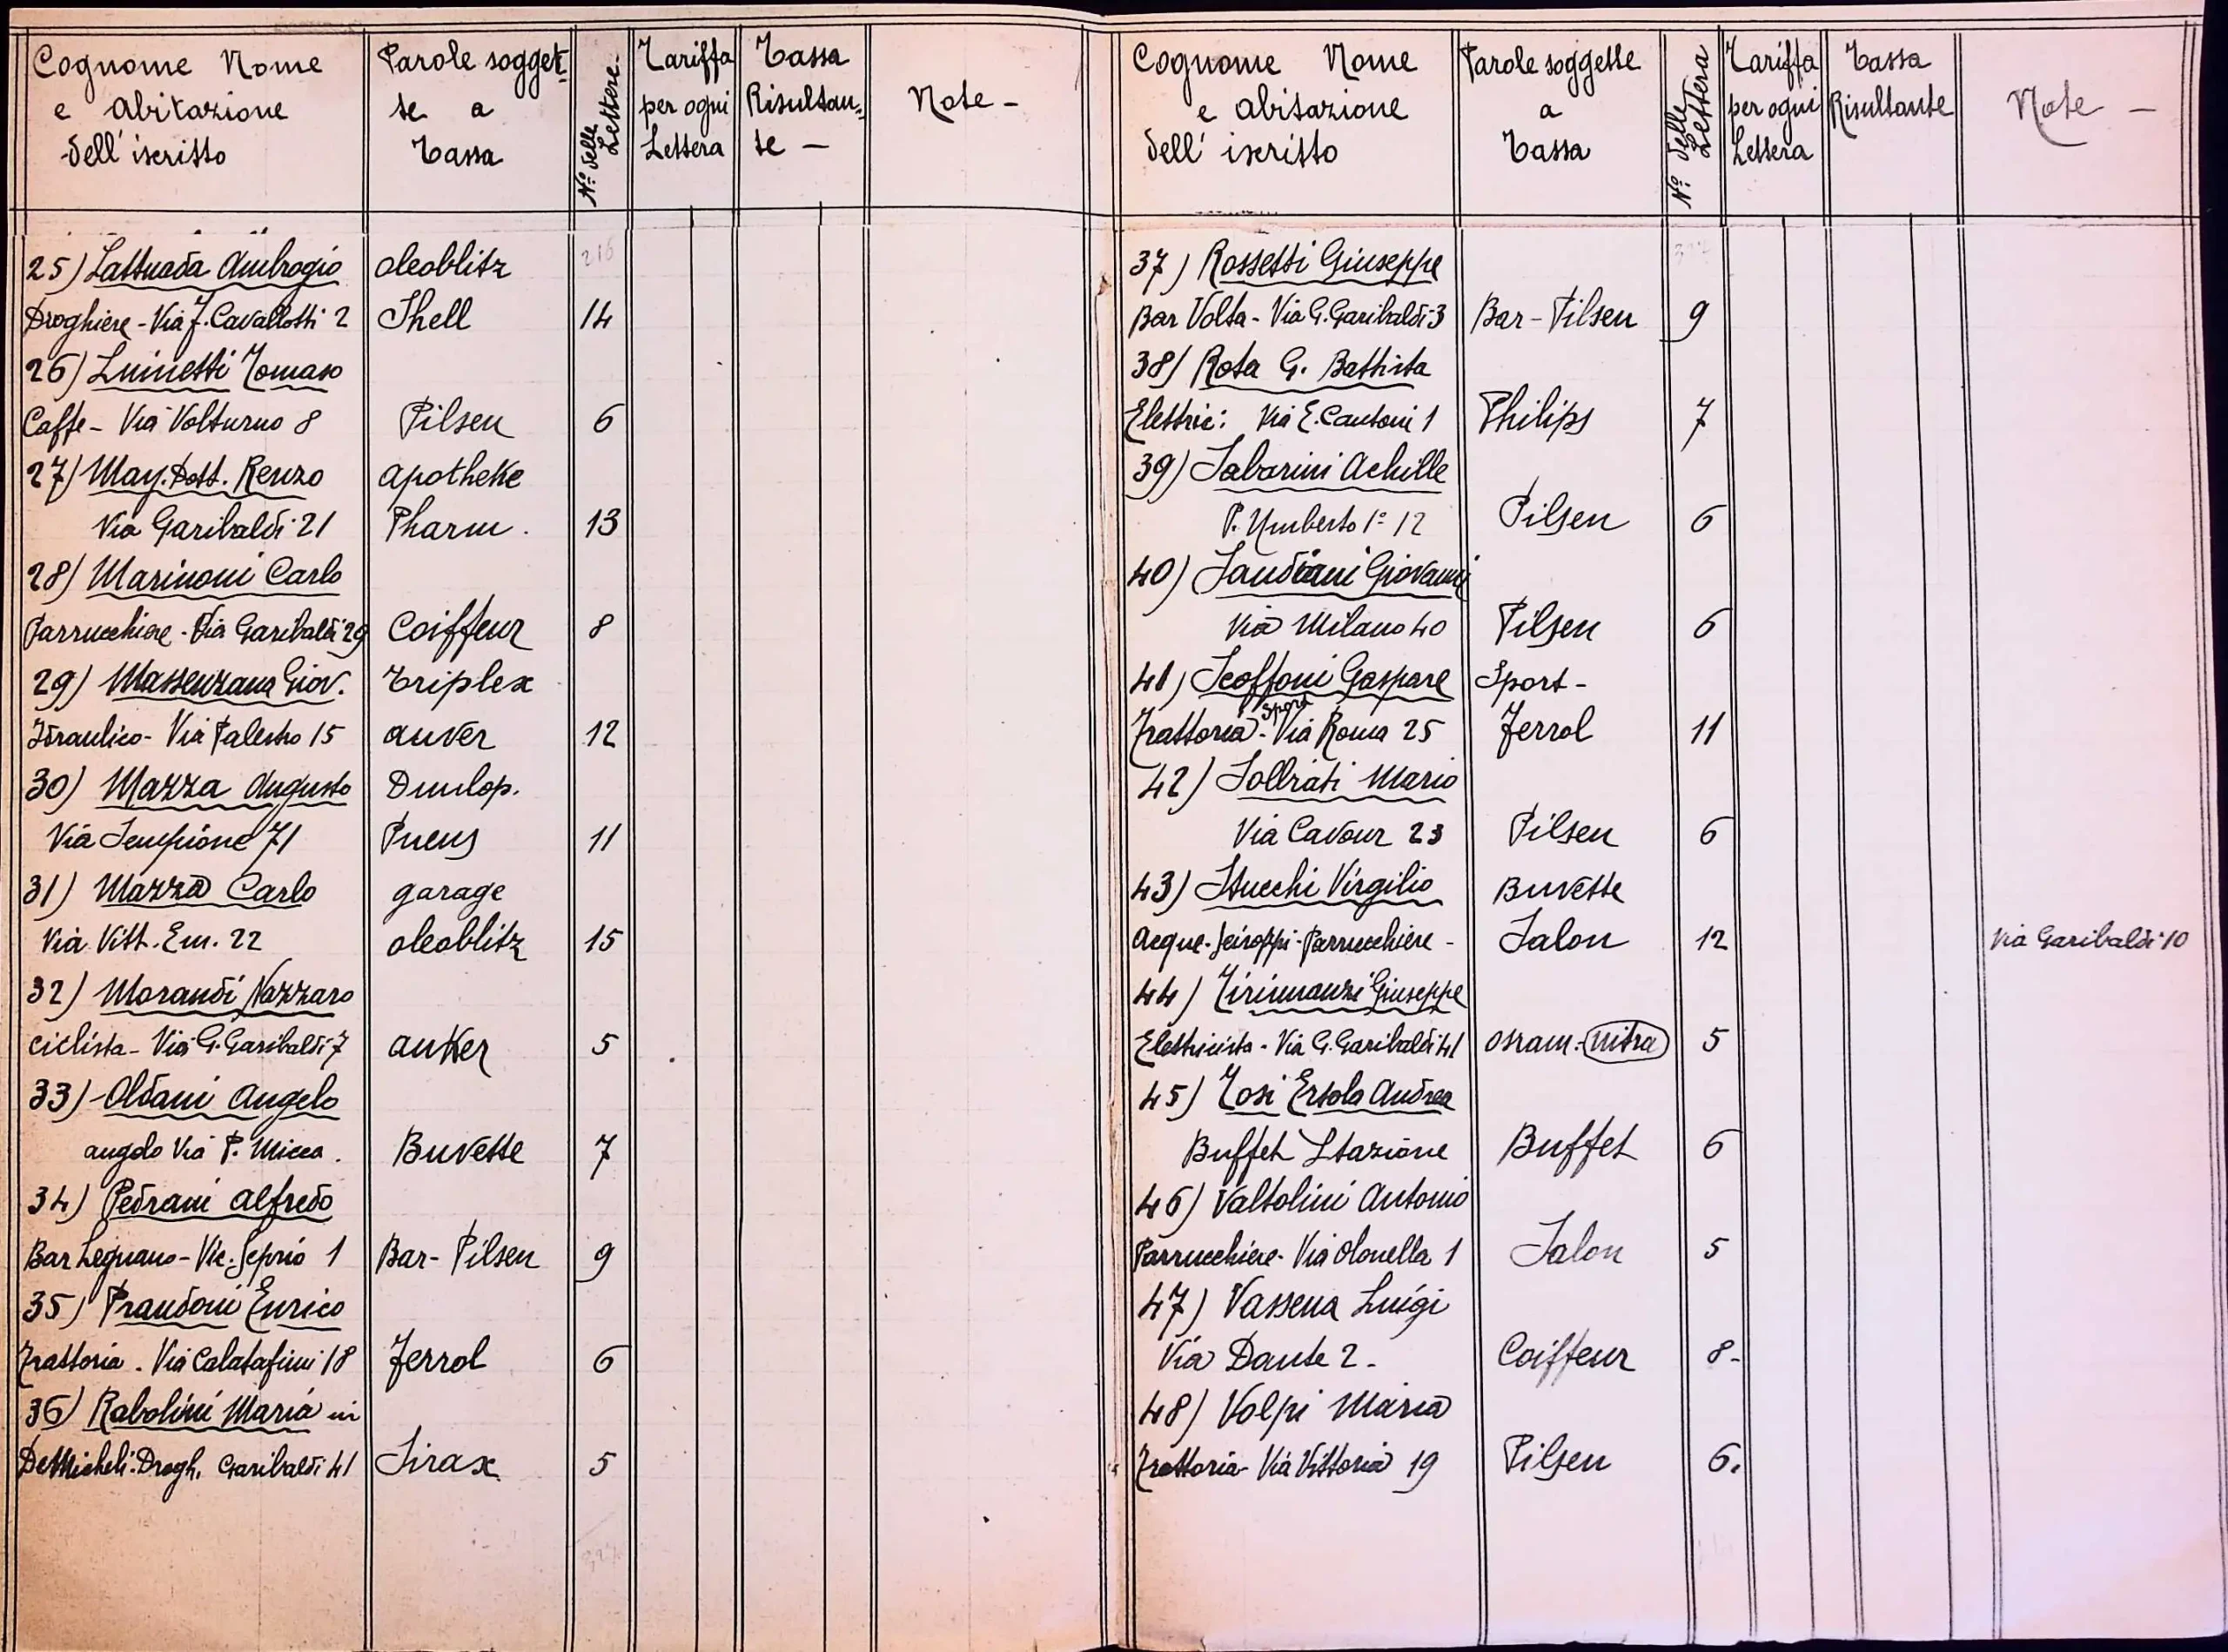 Cognome Nome e abitazione dell' iscritto
Parole sogget-te a Tassa
N.° delle Lettere.
Tariffa per ogni Lettera
Tassa Risultan-te -
Note -
25) Lattuada Ambrogio oleoblitz 216
Droghiere - Via F. Cavallotti 2 Shell 14
26) Luinetti Tomaso
Caffe - Via Volturno 8 Pilsen 6
27) May. Dott. Renzo apotheke
Via Garibaldi 21 Pharm. 13
28) Marinoni Carlo
Parrucchiere - Via Garibaldi 29 Coiffeur 8
29) Massenzana Giov. Triplex
Idraulico - Via Palestro 15 auver 12
30) Mazza Augusto Dunlop.
Via Sempione 71 Pneus 11
31) Mazza Carlo garage
Via Vitt. Em. 22 oleoblitz 15
32) Morandi Nazzaro
ciclista - Via G. Garibaldi 7 anker 5
33) Oldani Angelo
angolo Via P. Micca. Buvette 7
34) Pedrani Alfredo
Bar Legnano - Vic. Seprio 1 Bar - Pilsen 9
35) Prandoni Enrico
Trattoria - Via Calatafimi 18 Ferrol 6
36) Rabolini Maria in
DeMicheli. Drogh. Garibaldi 41 Sirax 5
327
Cognome Nome e abitazione dell' iscritto
Parole soggette a Tassa
N.° delle Lettera
Tariffa per ogni Lettera
Tassa Risultante
Note -
37) Rossetti Giuseppe
Bar Volta - Via G. Garibaldi 3 Bar - Pilsen 9
38) Rota G. Battista
Elettric: Via E. Cantoni 1 Philips 7
39) Sabarini Achille
P. Umberto 1° 12 Pilsen 6
40) Landiani Giovanni
Via Milano 40 Pilsen 6
41) Scoffoni Gaspare Sport -
Sport
Trattoria - Via Roma 25 Ferrol 11
42) Sollrati Mario
Via Cavour 23 Pilsen 6
43) Stucchi Virgilio Buvette
Acque - Sciroppi - Parrucchiere - Salon 12 Via Garibaldi 10
44) Tirinnanzi Giuseppe
Elettricista - Via G. Garibaldi 41 Osram - nitra 5
45) Tosi Ersola Andrea
Buffet Stazione Buffet 6
46) Valtolini Antonio
Parrucchiere - Via Olonella 1 Salon 5
47) Vassena Luigi
Via Dante 2 - Coiffeur 8 -
48) Volpi Maria
Trattoria - Via Vittoria 19 Pilsen 6.